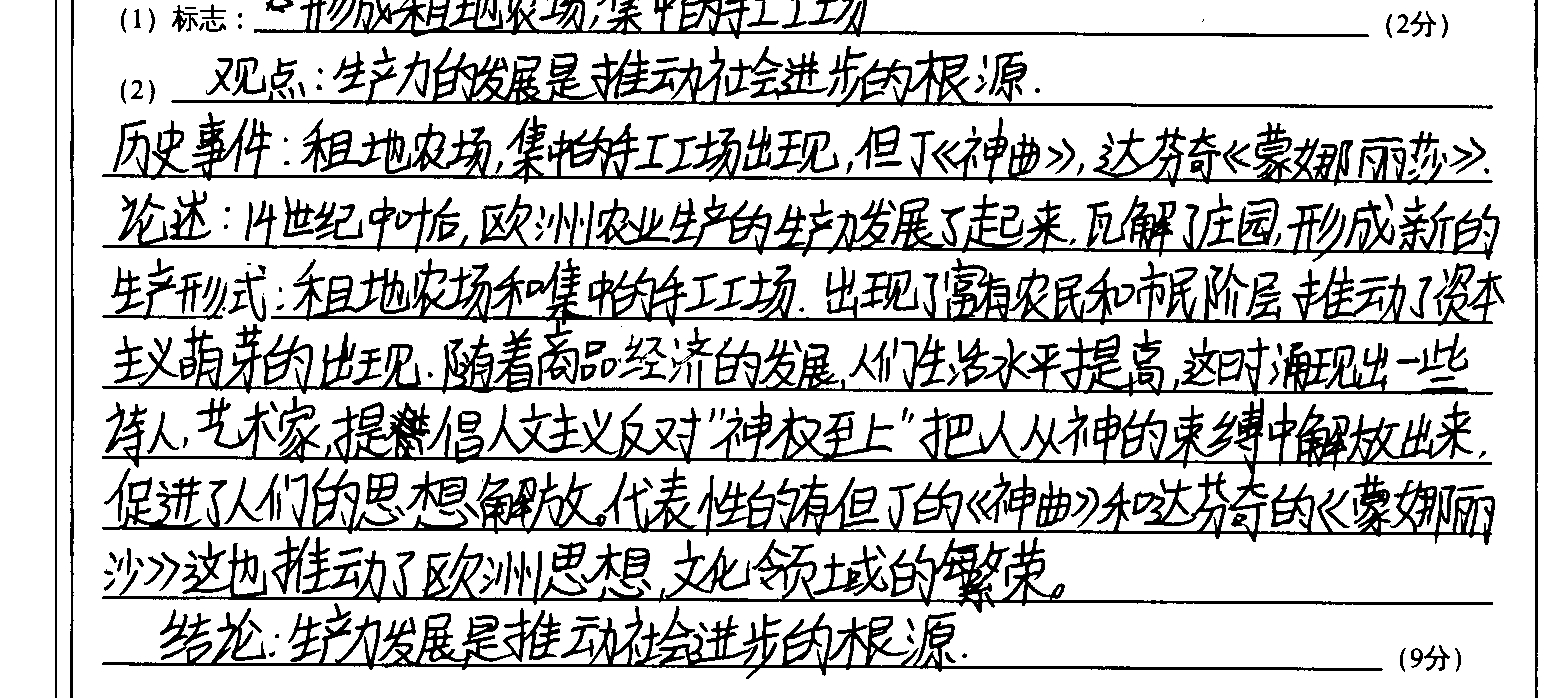 (1) 标志：形成租地农场，集中的手工工场 (2分)
(2) 观点：生产力的发展是推动社会进步的根源.
历史事件：租地农场，集中的手工工场出现，但丁《神曲》，达芬奇《蒙娜丽莎》.
论述：14世纪中叶后，欧洲农业生产的生产力发展了起来，瓦解了庄园，形成新的
生产形式：租地农场和集中的手工工场. 出现了富有农民和市民阶层，推动了资本
主义萌芽的出现. 随着商品经济的发展，人们生活水平提高，这时涌现出一些
诗人，艺术家，提倡人文主义反对"神权至上"把人从神的束缚中解放出来，
促进了人们的思想解放。代表性的有但丁的《神曲》和达芬奇的《蒙娜丽
沙》这也推动了欧洲思想，文化领域的繁荣。
结论：生产力发展是推动社会进步的根源. (9分)